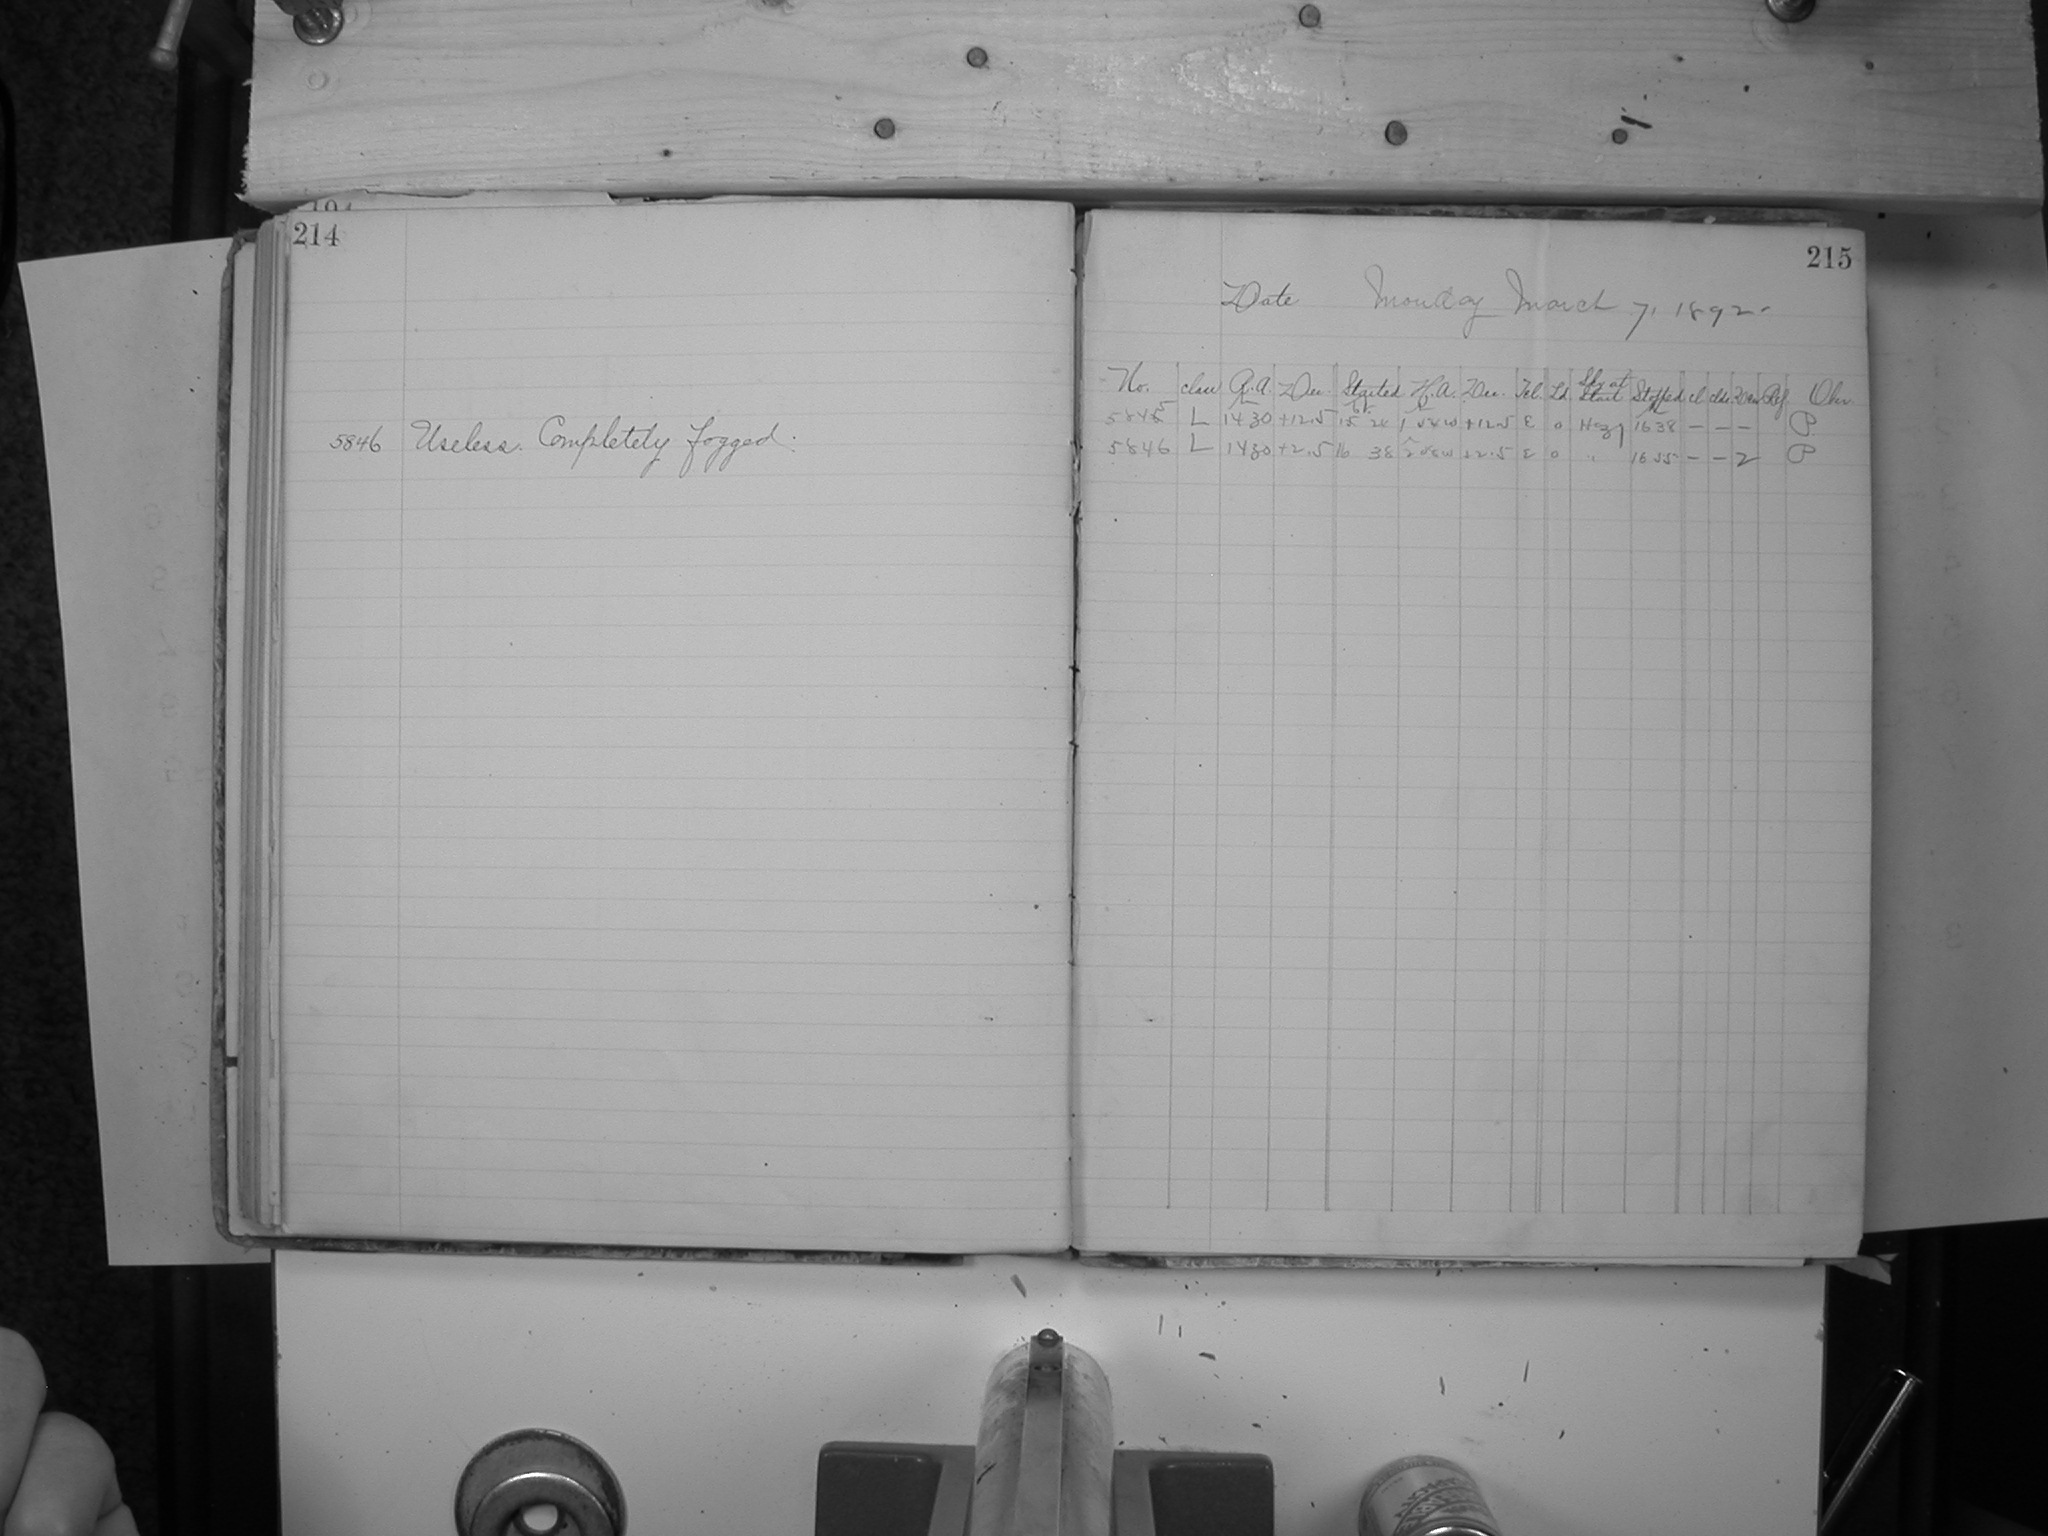 214
5846 Useless. Completely fogged.
215
Date Monday March 7, 1892.
No. class R.A. Dec. Started H.A. Dec. Tel. Ld. Sky at Start Stopped cl clds Rej. Obsr.
5845 L 1430 +12.5 15 24 1 54 w +12.5 E 0 Hazy 1638 – – – P.
5846 L 1430 +2.5 16 38 2 08 w +2.5 E 0 " 1655 – – 2 P